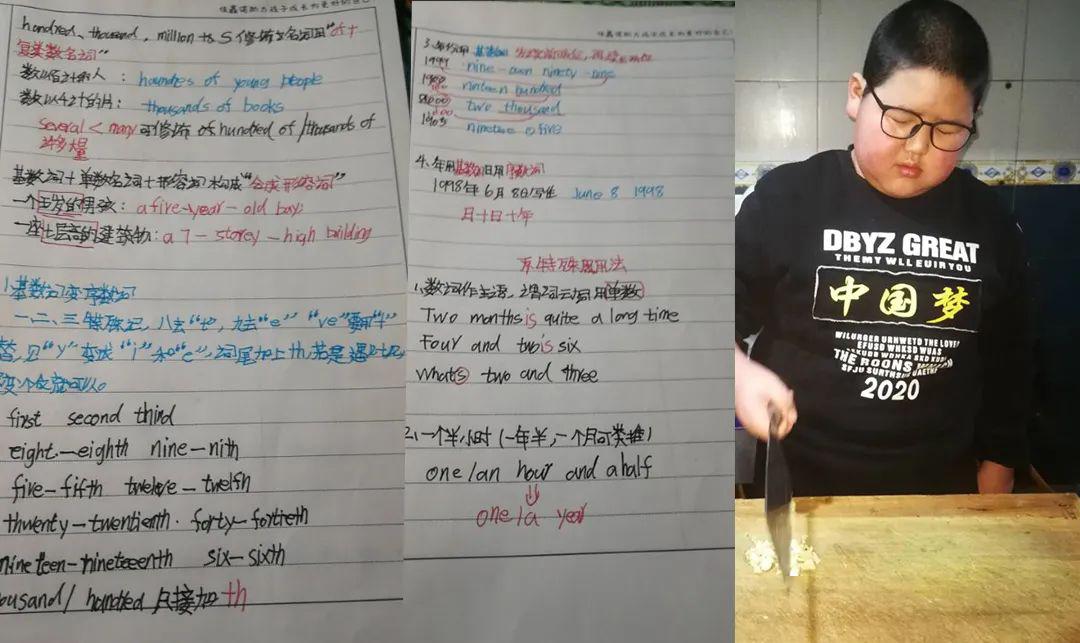 hundred、thousand，million 加 S 修饰 名词用"of+
复数名词"
数以百计的人：houndres of young people
数以千计的书：thousands of books
several < many 可修饰 of hundred of / thousands of
许多大量
基数词+单数名词+形容词 构成"合成形容词"
一个五岁的男孩：a five-year-old boy
一座七层高的建筑物：a 7-storey-high building
1.基数词变序数词
一、二、三 特殊记，八去"t"，九去"e" "ve"要用"f"
替，见"y"变成"i"和"e"，词尾加上th，若是遇
变个位就可以
first second third
eight-eighth nine-nith
five-fifth twelve-twelfh
thwenty-twentienth. forty-fortieth
nineteen-nineteeenth six-sixth
ousand/ hundred 直接加th
3.年份用 基数词
1999 nine-
nineteen hundred
two thousand
1905 ninetwe o five
4.年用基数词日用序数词
1998年6月8日写作 June 8 1998
月+日+年
特殊用法
1.数词作主语，谓词动词用单数
Two months is quite a long time
Four and two is six
what(s) two and three
2.一个半小时(一年半，一个月可类推)
one/an hour and a half
one/a year
DBYZ GREAT
THEMY WLLEUIRYOU
中国梦
WILURDER URNWETO THE LOVE/
THE ROONS
2020